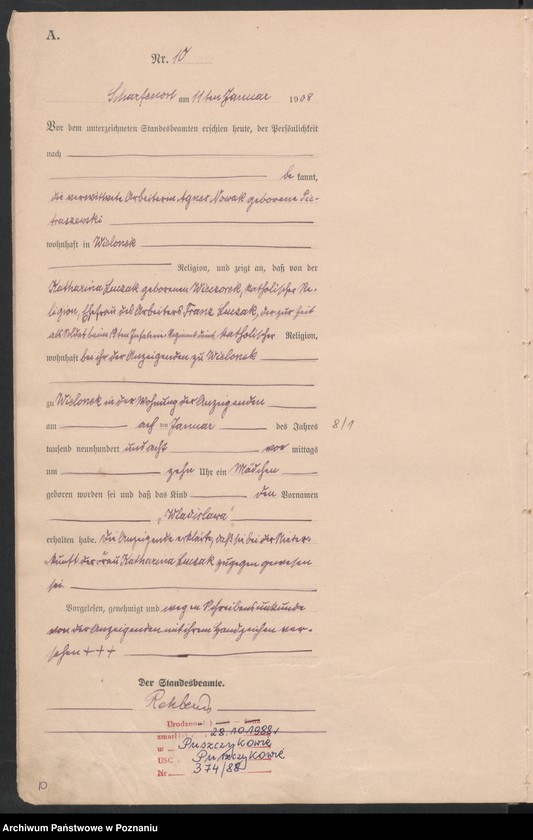 A.
Nr. 10
Scharfenort am 11ten Januar 1908
Vor dem unterzeichneten Standesbeamten erschien heute, der Persönlichkeit
nach
be kannt,
die verwittwete Arbeiterin Agnes Nowak geborene Pie-
traszewski
wohnhaft in Wielonek
Religion, und zeigt an, daß von der
Katharina Luczak geborenen Wieczorek, katholischer Re-
ligion, Ehefrau des Arbeiters Franz Luczak, der zur Zeit
als Soldat beim Infanterie Regiment dient, katholischer Religion,
wohnhaft bei ihr der Anzeigenden zu Wielonek
zu Wielonek in der Wohnung der Anzeigenden
am acht ten Januar des Jahres 8/1
tausend neunhundert und acht vor mittags
um zehn Uhr ein Mädchen
geboren worden sei und daß das Kind den Vornamen
„Wladislawa“
erhalten habe. Die Anzeigende erklärte, daß sie bei der Nieder-
kunft der Frau Katharina Luczak zugegen gewesen
sei.
Vorgelesen, genehmigt und wegen Schreibensunkunde
von der Anzeigenden mit ihrem Handzeichen ver-
sehen + + +
Der Standesbeamte.
zmarł 28.10.1988,
w Puszczykowie
USC Puszczykowie
Nr 374/88
10
Archiwum Państwowe w Poznaniu